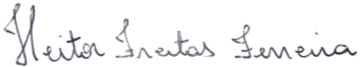 Heitor Freitas Ferreira